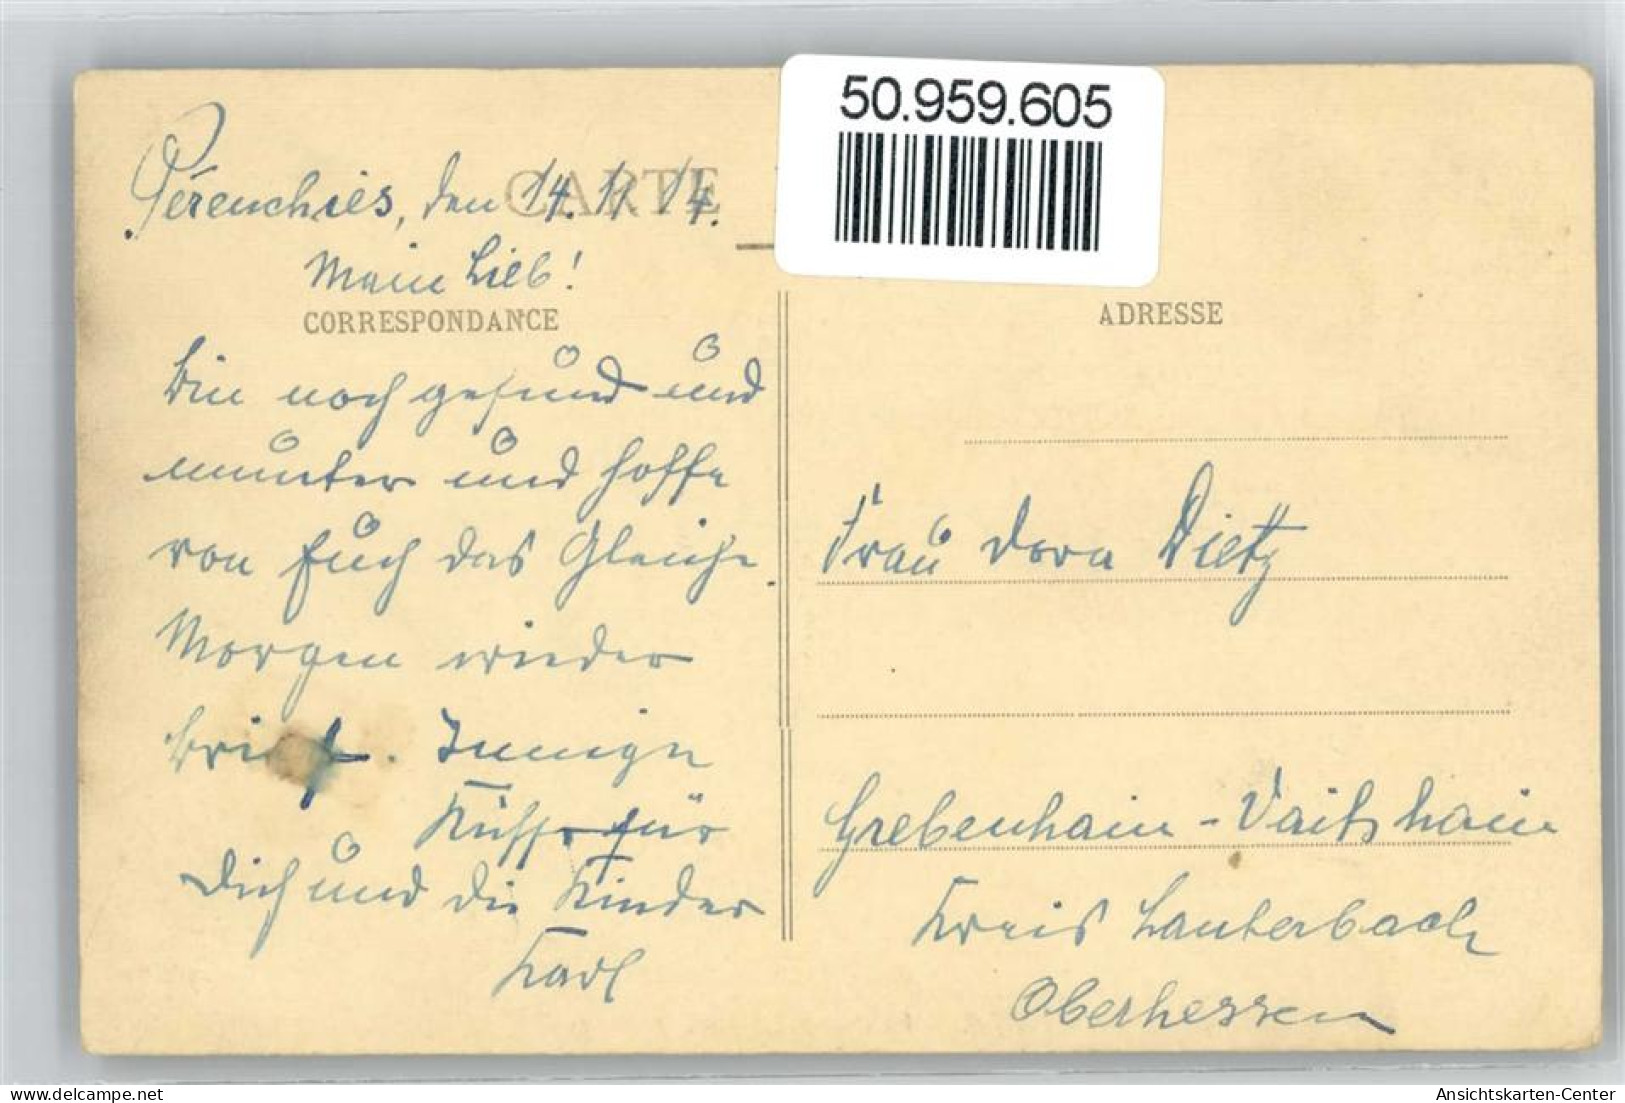 50.959.605
CARTE
Pérenchies, den 14. 11. 14.
Mein Lieb!
CORRESPONDANCE
Bin noch gesund und
munter und hoffe
von Euch das Gleiche.
Morgen wieder
Brief. Innige
Küsse für
Dich und die Kinder
Karl
ADRESSE
Frau Dora Dietz
Grebenhain-Vaitshain
Kreis Lauterbach
Oberhessen
Ansichtskarten-Center